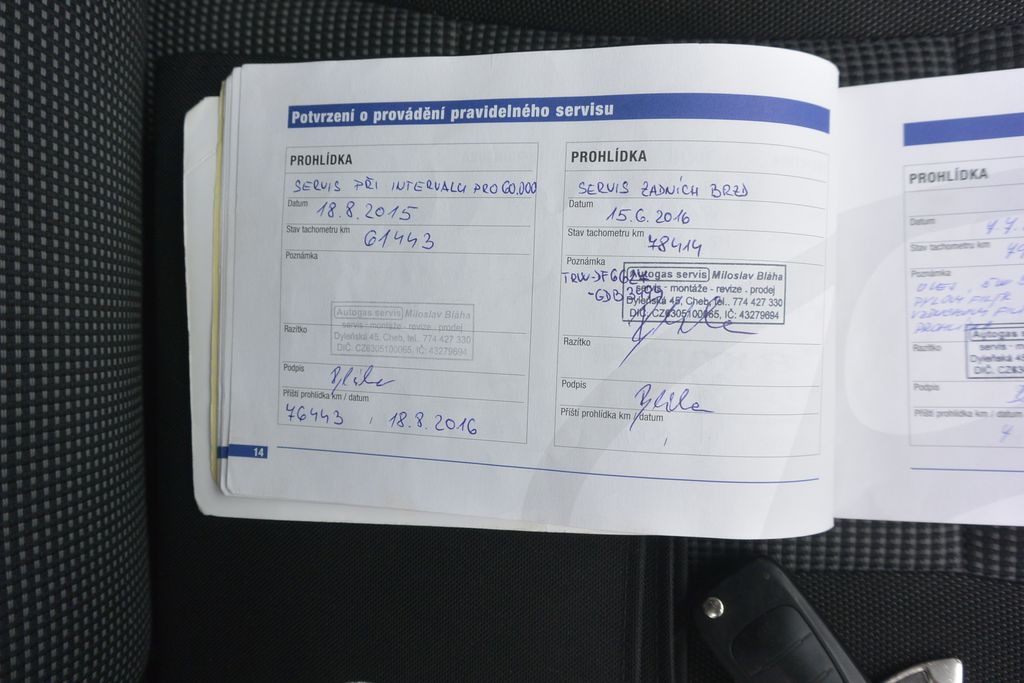 Potvrzení o provádění pravidelného servisu
PROHLÍDKA
SERVIS PŘI INTERVALU PRO 60.000
Datum 18.8.2015
Stav tachometru km 61443
Poznámka
Autogas servis Miloslav Bláha
servis - montáže - revize - prodej
Dyleňská 45, Cheb, tel.. 774 427 330
DIČ. CZ6305100065, IČ: 43279694
Razítko
Podpis Bláha
Příští prohlídka km / datum
76443 , 18.8.2016
14
PROHLÍDKA
SERVIS ZADNÍCH BRZD
Datum 15.6.2016
Stav tachometru km 78414
Poznámka
Autogas servis Miloslav Bláha
servis - montáže - revize - prodej
Dyleňská 45, Cheb, tel.. 774 427 330
DIČ. CZ6305100065, IČ: 43279694
Razítko
Podpis Bláha
Příští prohlídka km / datum
,
PROHLÍDKA
Datum
Stav tachometru km
Poznámka
OLEJ,
PYLOVÝ FILTR
Razítko
Podpis
Příští prohlídka km / datum